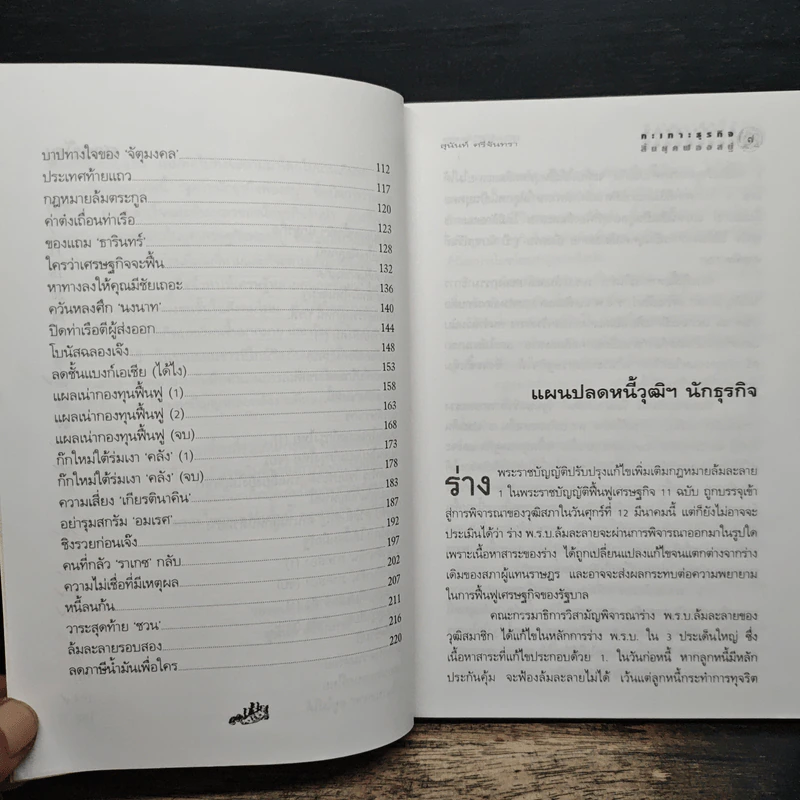 บาปทางใจของ ‘จัตุมงคล’ 112
ประเทศท้ายแถว 117
กฎหมายล้มตระกูล 120
ค่าต๋งเถื่อนท่าเรือ 123
ของแถม ‘ธารินทร์’ 128
ใครว่าเศรษฐกิจจะฟื้น 132
หาทางลงให้คุณมีชัยเถอะ 136
ควันหลงศึก ‘นงนาท’ 140
ปิดท่าเรือตีผู้ส่งออก 144
โบนัสฉลองเจ๊ง 148
ลดชั้นแบงก์เอเชีย (ได้ไง) 153
แผลเน่ากองทุนฟื้นฟู (1) 158
แผลเน่ากองทุนฟื้นฟู (2) 163
แผลเน่ากองทุนฟื้นฟู (จบ) 168
ก๊กใหม่ใต้ร่มเงา ‘คลัง’ (1) 173
ก๊กใหม่ใต้ร่มเงา ‘คลัง’ (จบ) 178
ความเสี่ยง ‘เกียรตินาคิน’ 183
อย่ารุมสกรัม ‘อมเรศ’ 187
ชิงรวยก่อนเจ๊ง 192
คนที่กลัว ‘ราเกซ’ กลับ 197
ความไม่เชื่อที่มีเหตุผล 202
หนี้ลนก้น 207
วาระสุดท้าย ‘ชวน’ 211
ล้มละลายรอบสอง 216
ลดภาษีน้ำมันเพื่อใคร 220
สุนันท์ ศรีจันทรา
กะเทาะธุรกิจ
สิ้นยุคฟองสบู่
๗
แผนปลดหนี้วุฒิฯ นักธุรกิจ
ร่าง พระราชบัญญัติปรับปรุงแก้ไขเพิ่มเติมกฎหมายล้มละลาย
1 ในพระราชบัญญัติฟื้นฟูเศรษฐกิจ 11 ฉบับ ถูกบรรจุเข้า
สู่การพิจารณาของวุฒิสภาในวันศุกร์ที่ 12 มีนาคมนี้ แต่ก็ยังไม่อาจจะ
ประเมินได้ว่า ร่าง พ.ร.บ.ล้มละลายจะผ่านการพิจารณาออกมาในรูปใด
เพราะเนื้อหาสาระของร่าง ได้ถูกเปลี่ยนแปลงแก้ไขจนแตกต่างจากร่าง
เดิมของสภาผู้แทนราษฎร และอาจจะส่งผลกระทบต่อความพยายาม
ในการฟื้นฟูเศรษฐกิจของรัฐบาล
คณะกรรมาธิการวิสามัญพิจารณาร่าง พ.ร.บ.ล้มละลายของ
วุฒิสมาชิก ได้แก้ไขในหลักการร่าง พ.ร.บ. ใน 3 ประเด็นใหญ่ ซึ่ง
เนื้อหาสาระที่แก้ไขประกอบด้วย 1. ในวันก่อหนี้ หากลูกหนี้มีหลัก
ประกันคุ้ม จะฟ้องล้มละลายไม่ได้ เว้นแต่ลูกหนี้กระทำการทุจริต